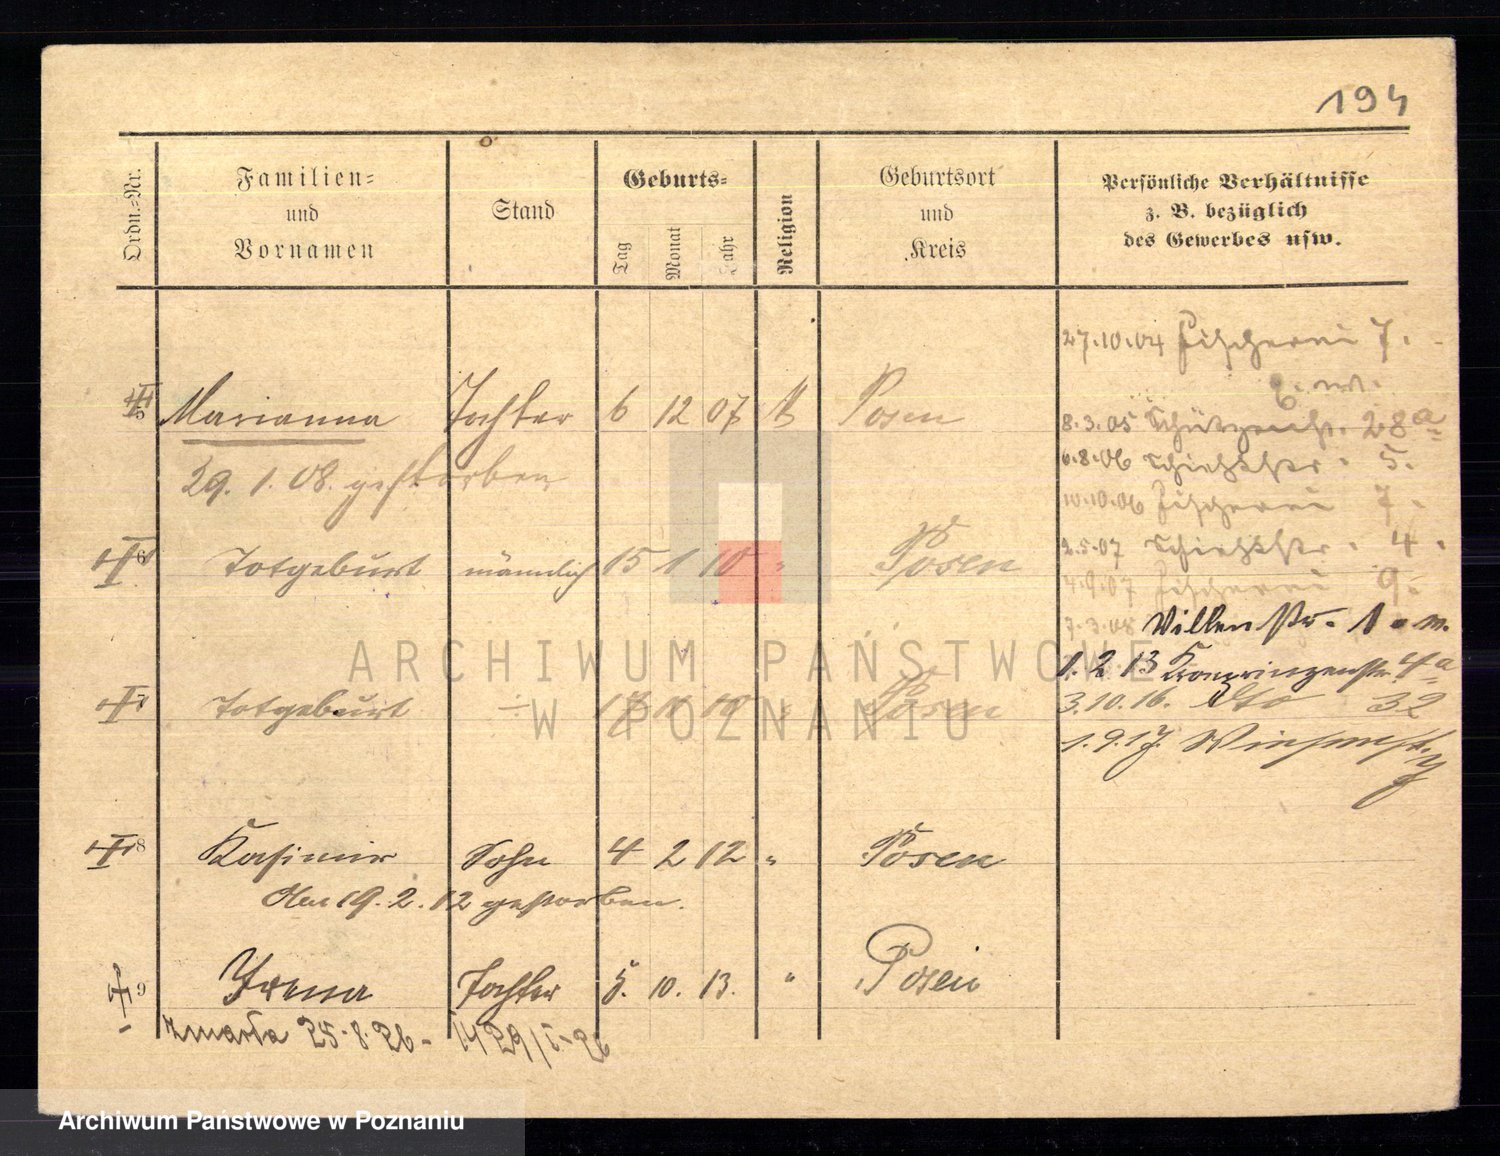 194
Ordn.-Nr.
Familien-
und
Vornamen
Stand
Geburts-
Tag
Monat
Jahr
Religion
Geburtsort
und
Kreis
Persönliche Verhältnisse
z. B. bezüglich
des Gewerbes usw.
27.10.04 Fischerei 7.
5 Marianna Tochter 6 12 07 Posen
8.3.05 Schützenstr. 28a
29. 1. 08. gestorben
6.8.06 Schießstr. 5.
10.10.06 Fischerei 7.
6 Totgeburt männlich 15 1 10 " Posen
2.5.07 Schießstr. 4.
4.9.07 Fischerei 9.
7.3.08 Villenstr. 1
1.2 13 Kronprinzenstr. 4a
7 Totgeburt Posen
3.10.16. dto 32
1.9.17.
8 Kasimir Sohn 4 2 12 " Posen
Am 19. 2. 12 gestorben.
9 Irena Tochter 5. 10. 13. " Posen
zmarła 25.8.26 -
ARCHIWUM PAŃSTWOWE
W POZNANIU
Archiwum Państwowe w Poznaniu